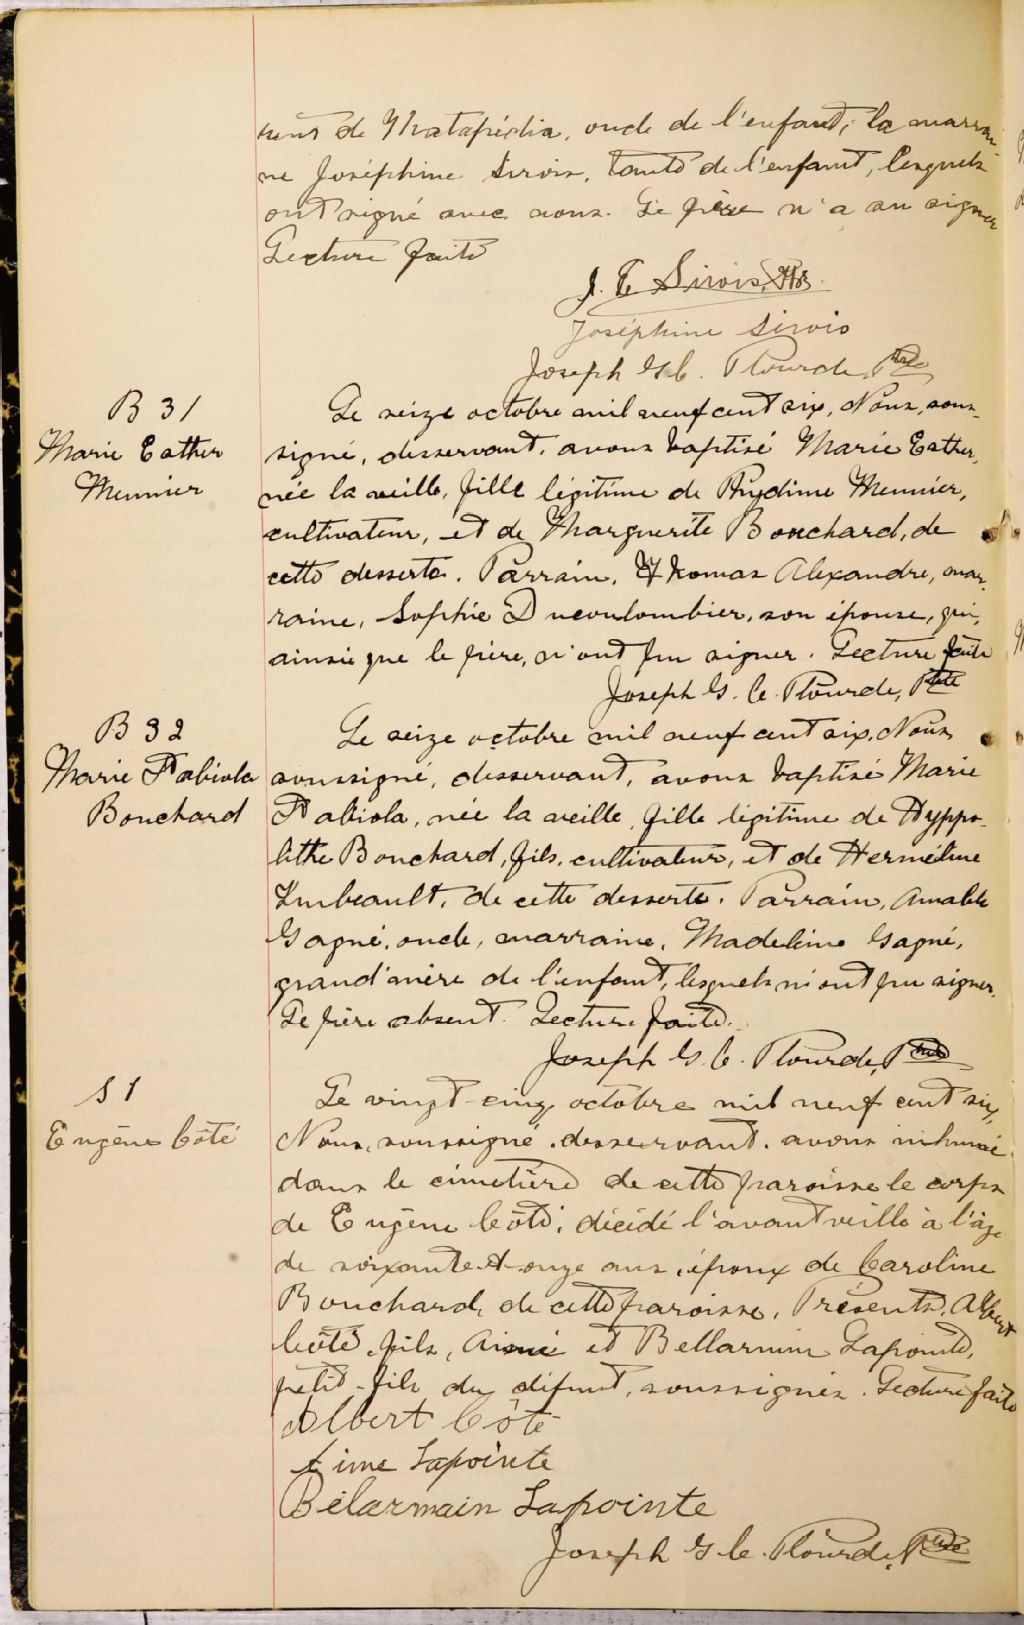 teur de Matapédia, oncle de l'enfant; la marrai-
ne Joséphine Sirois, tante de l'enfant, lesquels
ont signé avec nous. Le père n'a su signer
Lecture faite
J. E. Sirois
Joséphine Sirois
Joseph G. C. Plourde, Ptre
B 31
Marie Esther
Meunier
Le seize octobre mil neuf cent six, Nous, sous-
signé, desservant, avons baptisé Marie Esther,
née la veille, fille légitime de Meunier,
cultivateur, et de Marguerite Bouchard, de
cette desserte. Parrain, Thomas Alexandre, mar-
raine, Sophie Ducoulombier, son épouse, qui,
ainsi que le père, n'ont pu signer. Lecture faite
Joseph G. C. Plourde, Ptre
B 32
Marie Fabiola
Bouchard
Le seize octobre mil neuf cent six, Nous
soussigné, desservant, avons baptisé Marie
Fabiola, née la veille, fille légitime de Hyppo-
lithe Bouchard, fils, cultivateur, et de Herméline
Imbeault, de cette desserte. Parrain, Amable
Gagné, oncle, marraine, Madeleine Gagné,
grand'mère de l'enfant, lesquels n'ont pu signer.
Le père absent. Lecture faite.
Joseph G. C. Plourde, Ptre
S 1
Eugène Côté
Le vingt-cinq octobre mil neuf cent six,
Nous, soussigné, desservant, avons inhumé
dans le cimetière de cette paroisse le corps
de Eugène Côté, décédé l'avant veille à l'âge
de soixante-et-onze ans, époux de Caroline
Bouchard, de cette paroisse. Présents, Albert
Côté, fils, Aimé et Bellarmin Lapointe,
petit-fils du défunt, soussignés. Lecture faite
Albert Côté
Aime Lapointe
Bélarmain Lapointe
Joseph G. C. Plourde, Ptre